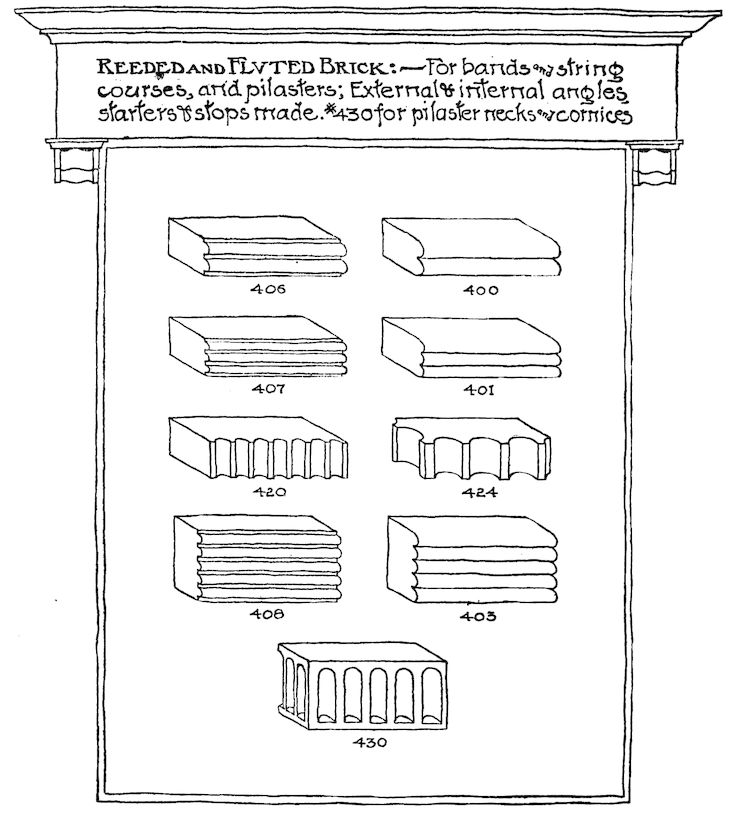 REEDED AND FLVTED BRICK:—For bands and string
courses, and pilasters; External & internal angles,
starters & stops made. #430 for pilaster necks and cornices
406 400
407 401
420 424
408 403
430